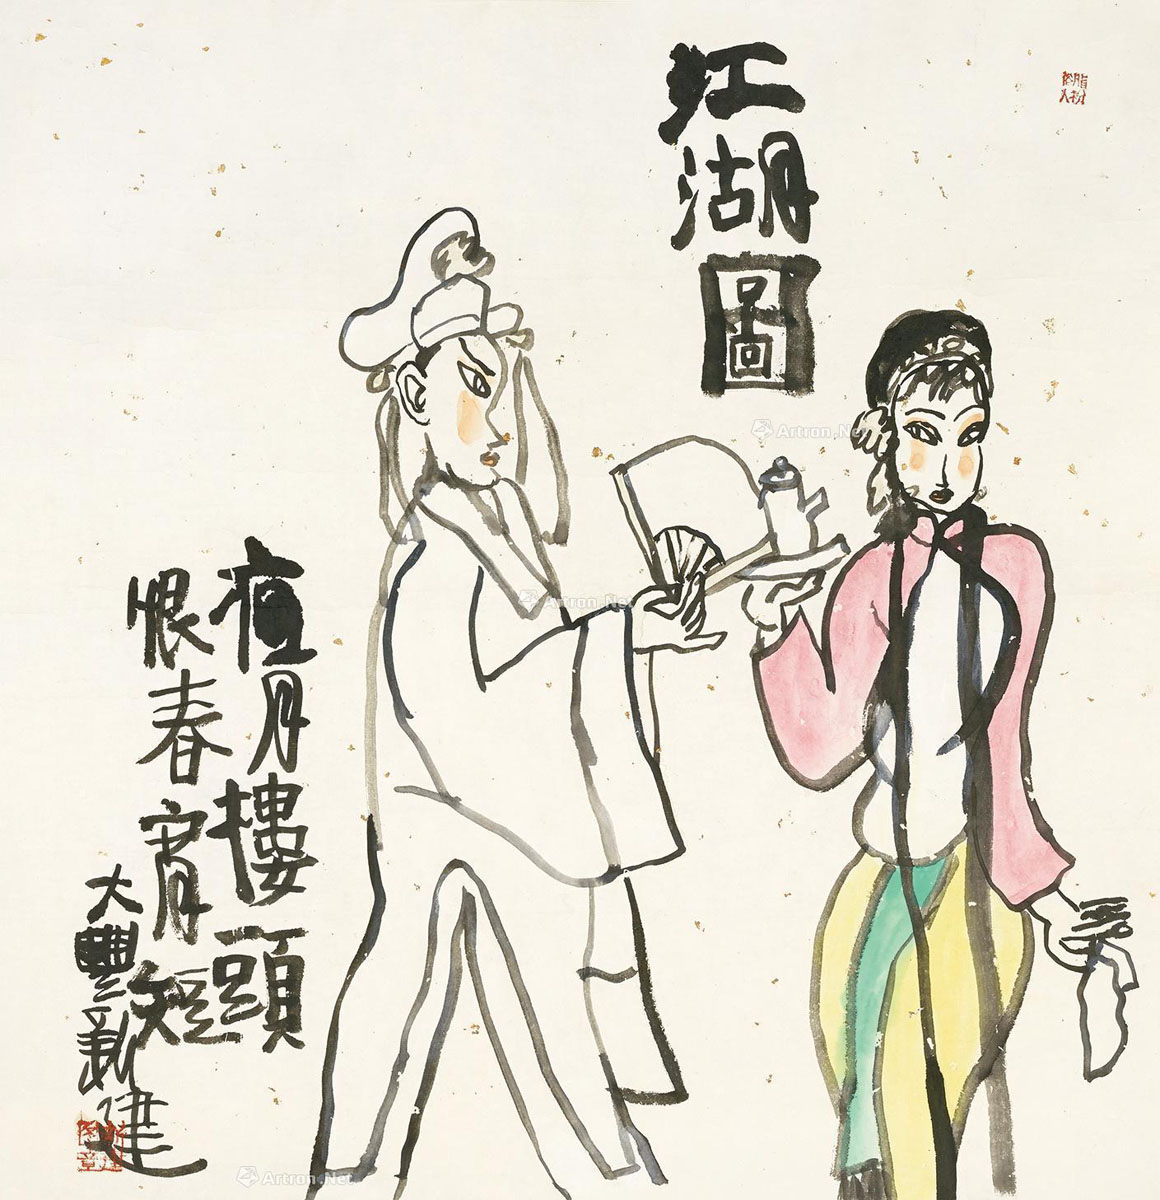 江湖圖
夜月樓頭
恨春宵短
大豐新建
脂粉客人
Artron.Net
Artron.Net
Artron.Net